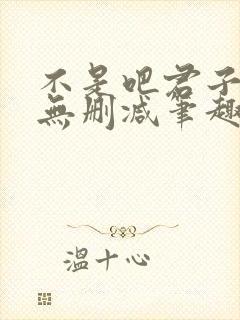 不是吧君子
無刪减筆趣
溫十心